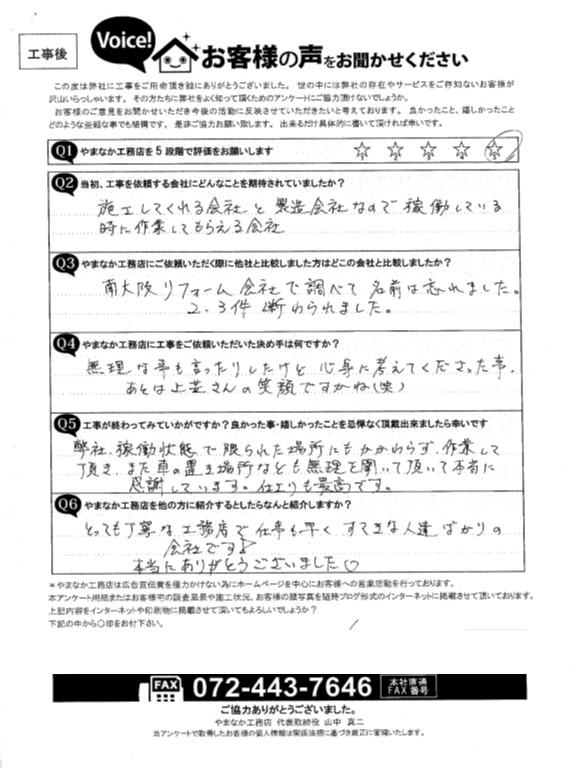 工事後
Voice!
お客様の声をお聞かせください
この度は弊社に工事をご用命頂き誠にありがとうございました。 世の中には弊社の存在やサービスをご存知ないお客様が
沢山いらっしゃいます。その方たちに弊社をよく知って頂くためのアンケートにご協力頂けないでしょうか。
お客様のご意見をお聞かせいただき今後の活動に反映させていただきたいと考えております。 良かったこと、嬉しかったこと
どのような些細な事でも結構です。 是非ご協力お願い致します。 出来るだけ具体的に書いて頂ければ幸いです。
Q1 やまなか工務店を5段階で評価をお願いします ☆ ☆ ☆ ☆ ☆
Q2 当初、工事を依頼する会社にどんなことを期待されていましたか？
施工してくれる会社と製造会社なので稼働している
時に作業してもらえる会社
Q3 やまなか工務店にご依頼いただく際に他社と比較しました方はどこの会社と比較しましたか？
南大阪リフォーム会社で調べて名前は忘れました。
2、3件断わられました。
Q4 やまなか工務店に工事をご依頼いただいた決め手は何ですか？
無理な事も言ったりしたけど心身に考えてくださった事、
あとは上芝さんの笑顔ですかね(笑)
Q5 工事が終わってみていかがですか？良かった事・嬉しかったことを忌憚なく頂戴出来ましたら幸いです
弊社、稼働状態で限られた場所にもかかわらず、作業して
頂き、また車の置き場所なども無理を聞いて頂いて本当に
感謝しています。仕上りも最高です。
Q6 やまなか工務店を他の方に紹介するとしたらなんと紹介しますか？
とっても丁寧な工務店で仕事も早く すてきな人達ばかりの
会社です♪
本当にありがとうございました♡
＊やまなか工務店は広告宣伝費を極力かけない為にホームページを中心にお客様への営業活動を行っております。
本アンケート用紙またはお客様宅の調査風景や施工状況、お客様の顔写真を随時ブログ形式のインターネットに掲載させて頂いております。
上記内容をインターネットや印刷物に掲載させて頂いてもよろしいでしょうか？
下記の中から○印をお付下さい。
FAX 072-443-7646 本社直通
FAX番号
ご協力ありがとうございました。
やまなか工務店 代表取締役 山中 真二
当アンケートで取得したお客様の個人情報は関係法規に基づき厳正に管理いたします。